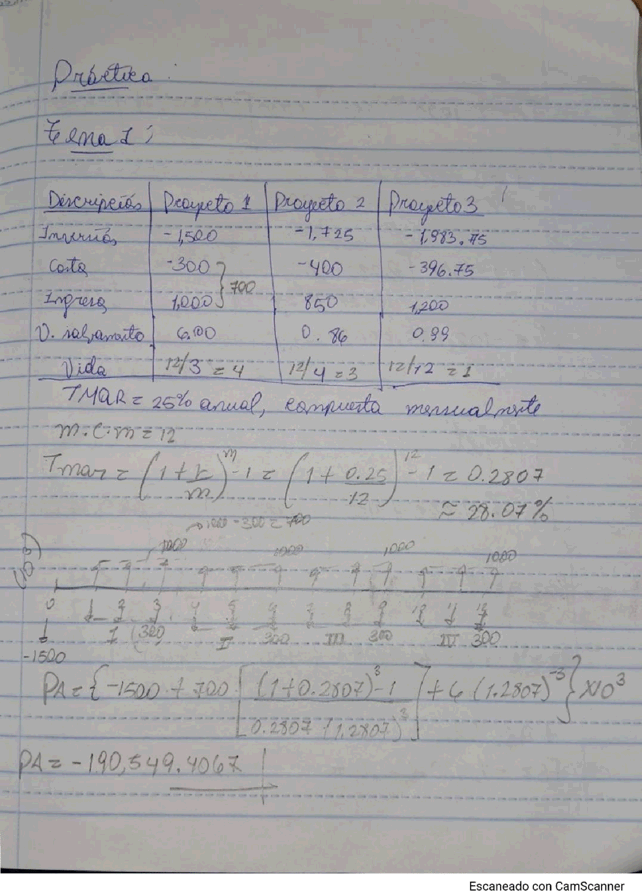 Práctica:
Tema 1:
Descripción Proyecto 1 Proyecto 2 Proyecto 3
Inversión -1,500 -1,725 -1,983.75
Costo -300 -400 -396.75
700
Ingreso 1,000 850 1,200
V. salvamento 6.00 0.86 0.99
Vida 12/3 = 4 12/4 = 3 12/12 = 1
TMAR = 25% anual, compuesta mensualmente
m.c.m = 12
Tmar = (1 + r/m)^m - 1 = (1 + 0.25/12)^12 - 1 = 0.2807
≈ 28.07%
1000 1000 1000 1000
0 1 2 3 4 5 6 7 8 9
I (300) II 300 III 300 IV 300
-1500
PA = {-1500 + 700 [(1+0.2807)^3 - 1 / 0.2807 (1.2807)^3] + 6 (1.2807)^-3} x10^3
PA = -190,549.4067
Escaneado con CamScanner